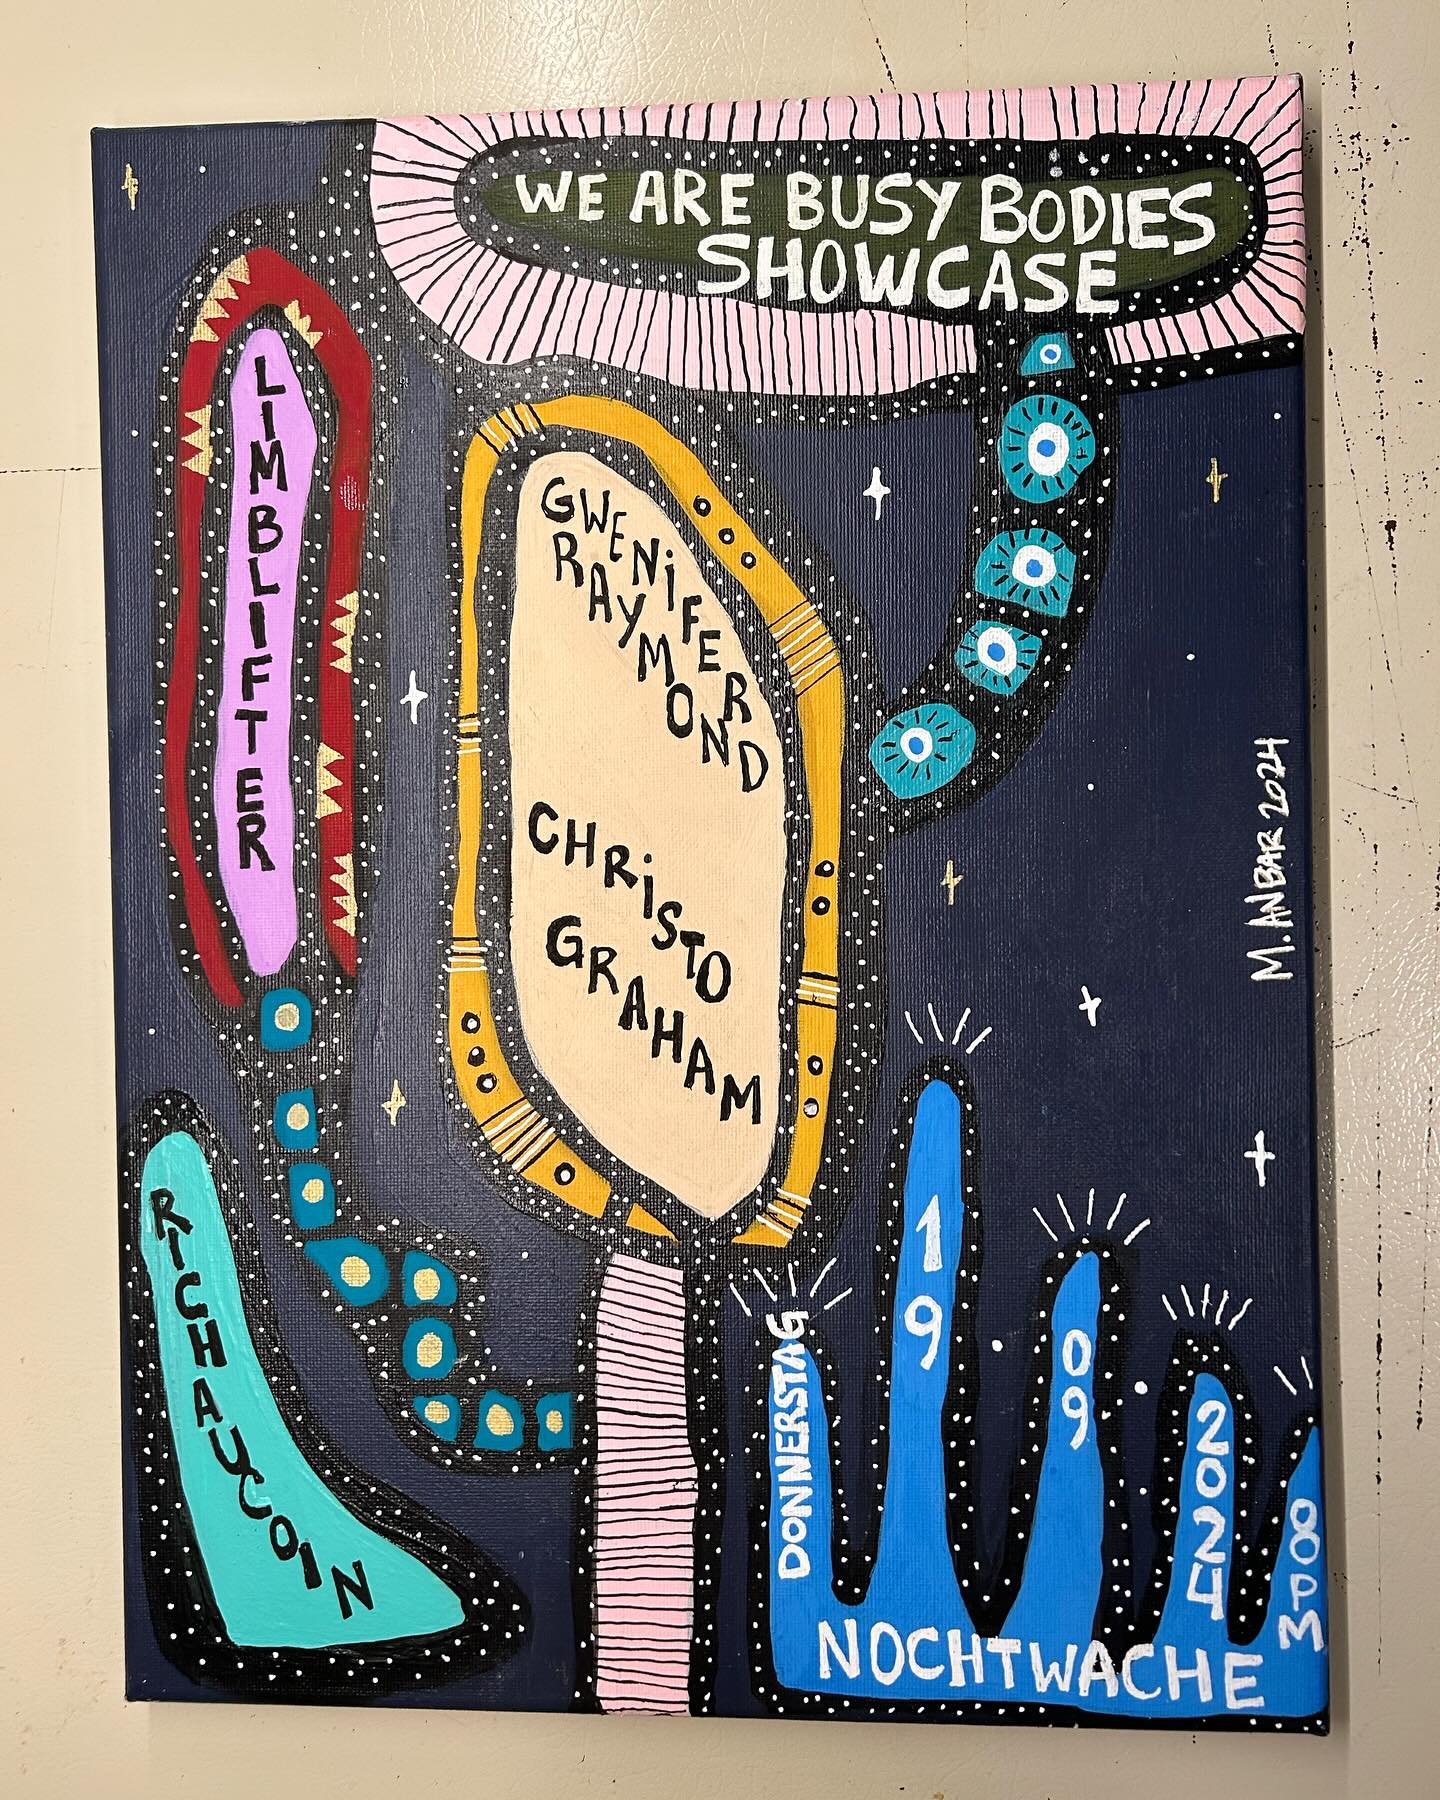 WE ARE BUSY BODIES
SHOWCASE
LIMBLIFTER
GWENiFER
RAYMOND
CHRiSTO
GRAHAM
RICHAUCOIN
M. ANBAR 2024
DONNERSTAG
19
09
2024
8PM
NOCHTWACHE